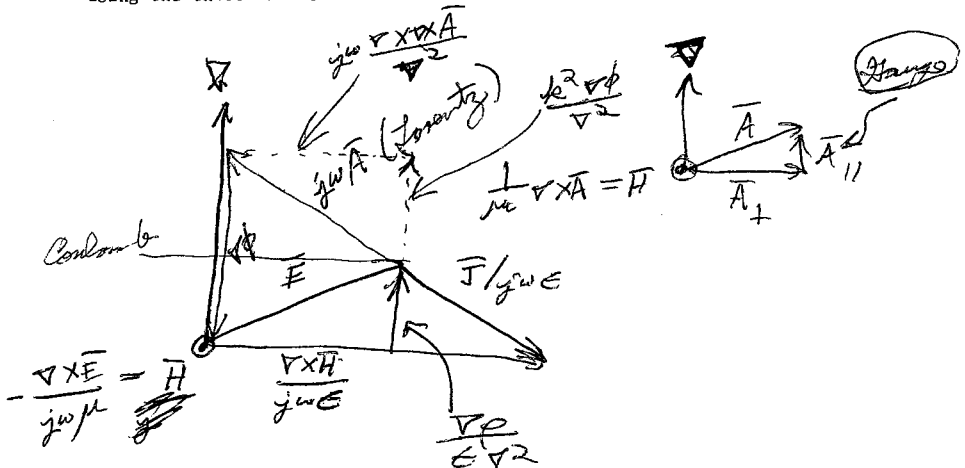 ∇
jω ∇×∇×A̅ / ∇²
jωA̅ (Lorentz)
k²∇φ / ∇²
∇
Gauge
A̅
A̅∥
A̅⊥
1/μ ∇×A̅ = H̅
Coulomb
∇φ
E̅
J̅/jωϵ
-∇×E̅ / jωμ = H̅
∇×H̅ / jωϵ
∇ρ / ϵ∇²